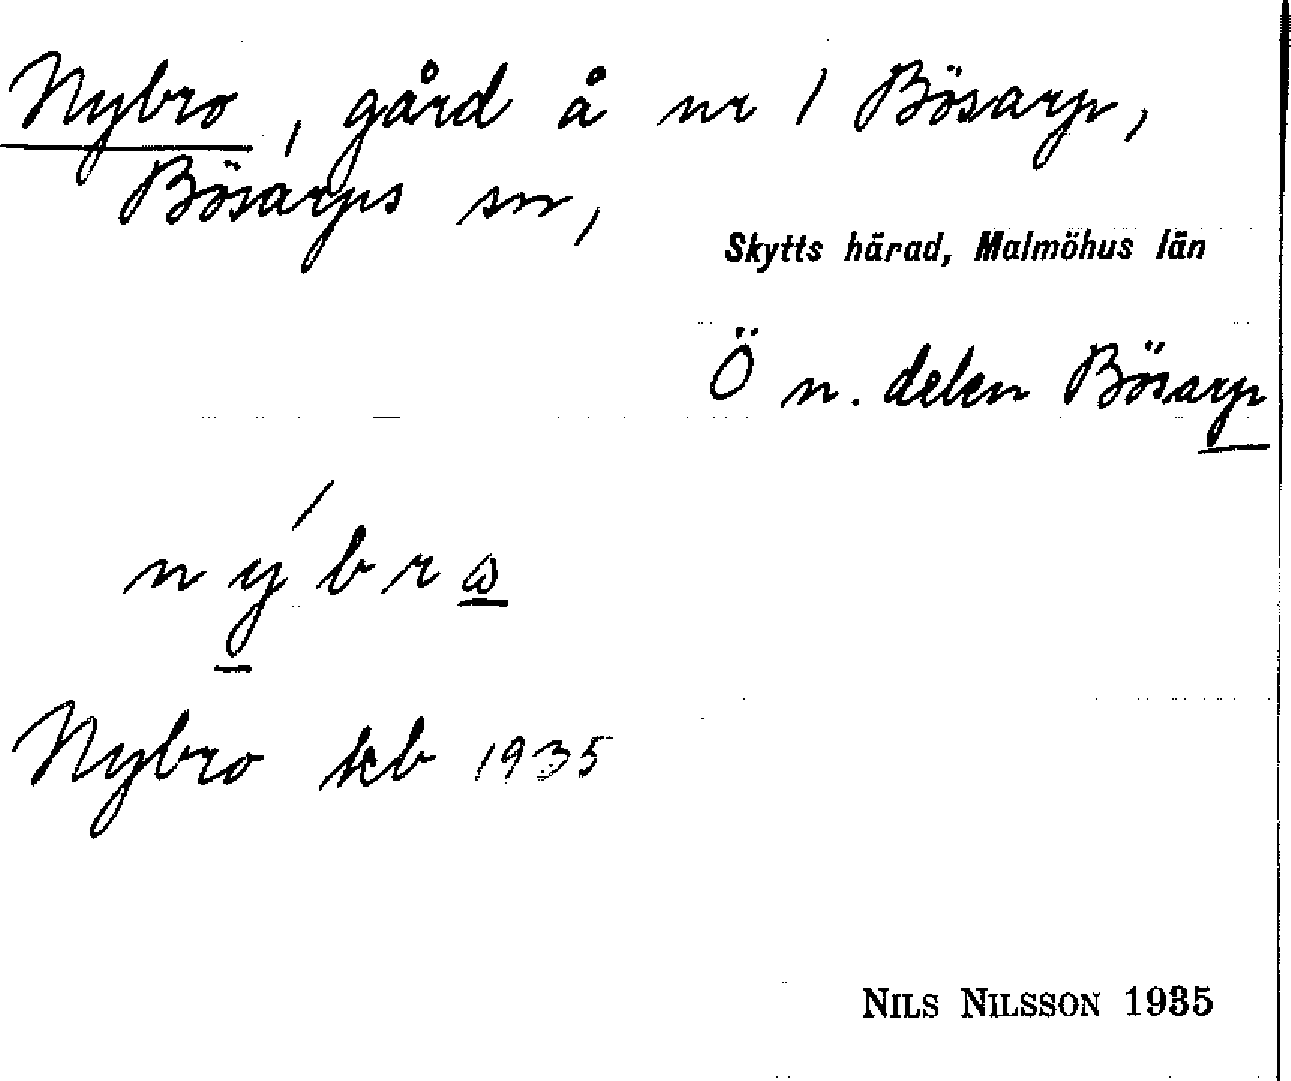 Nybro, gård å nr 1 Bösarp,
Bösarps sn,
Skytts härad, Malmöhus län
Ö n. delen Bösarp
Nybro kb 1935
NILS NILSSON 1935